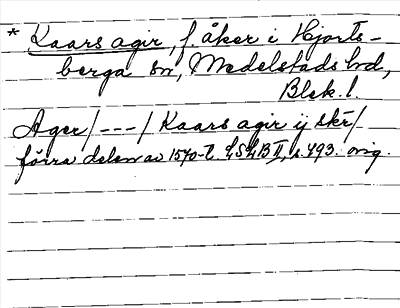 * Kaars agir, f. åker i Hjorts-
berga sn, Medelstads hd,
Blek. l.
Ager/---/ Kaars agir ij skr/
förra delen av 1570-t. LSLB II, s. 493. orig.